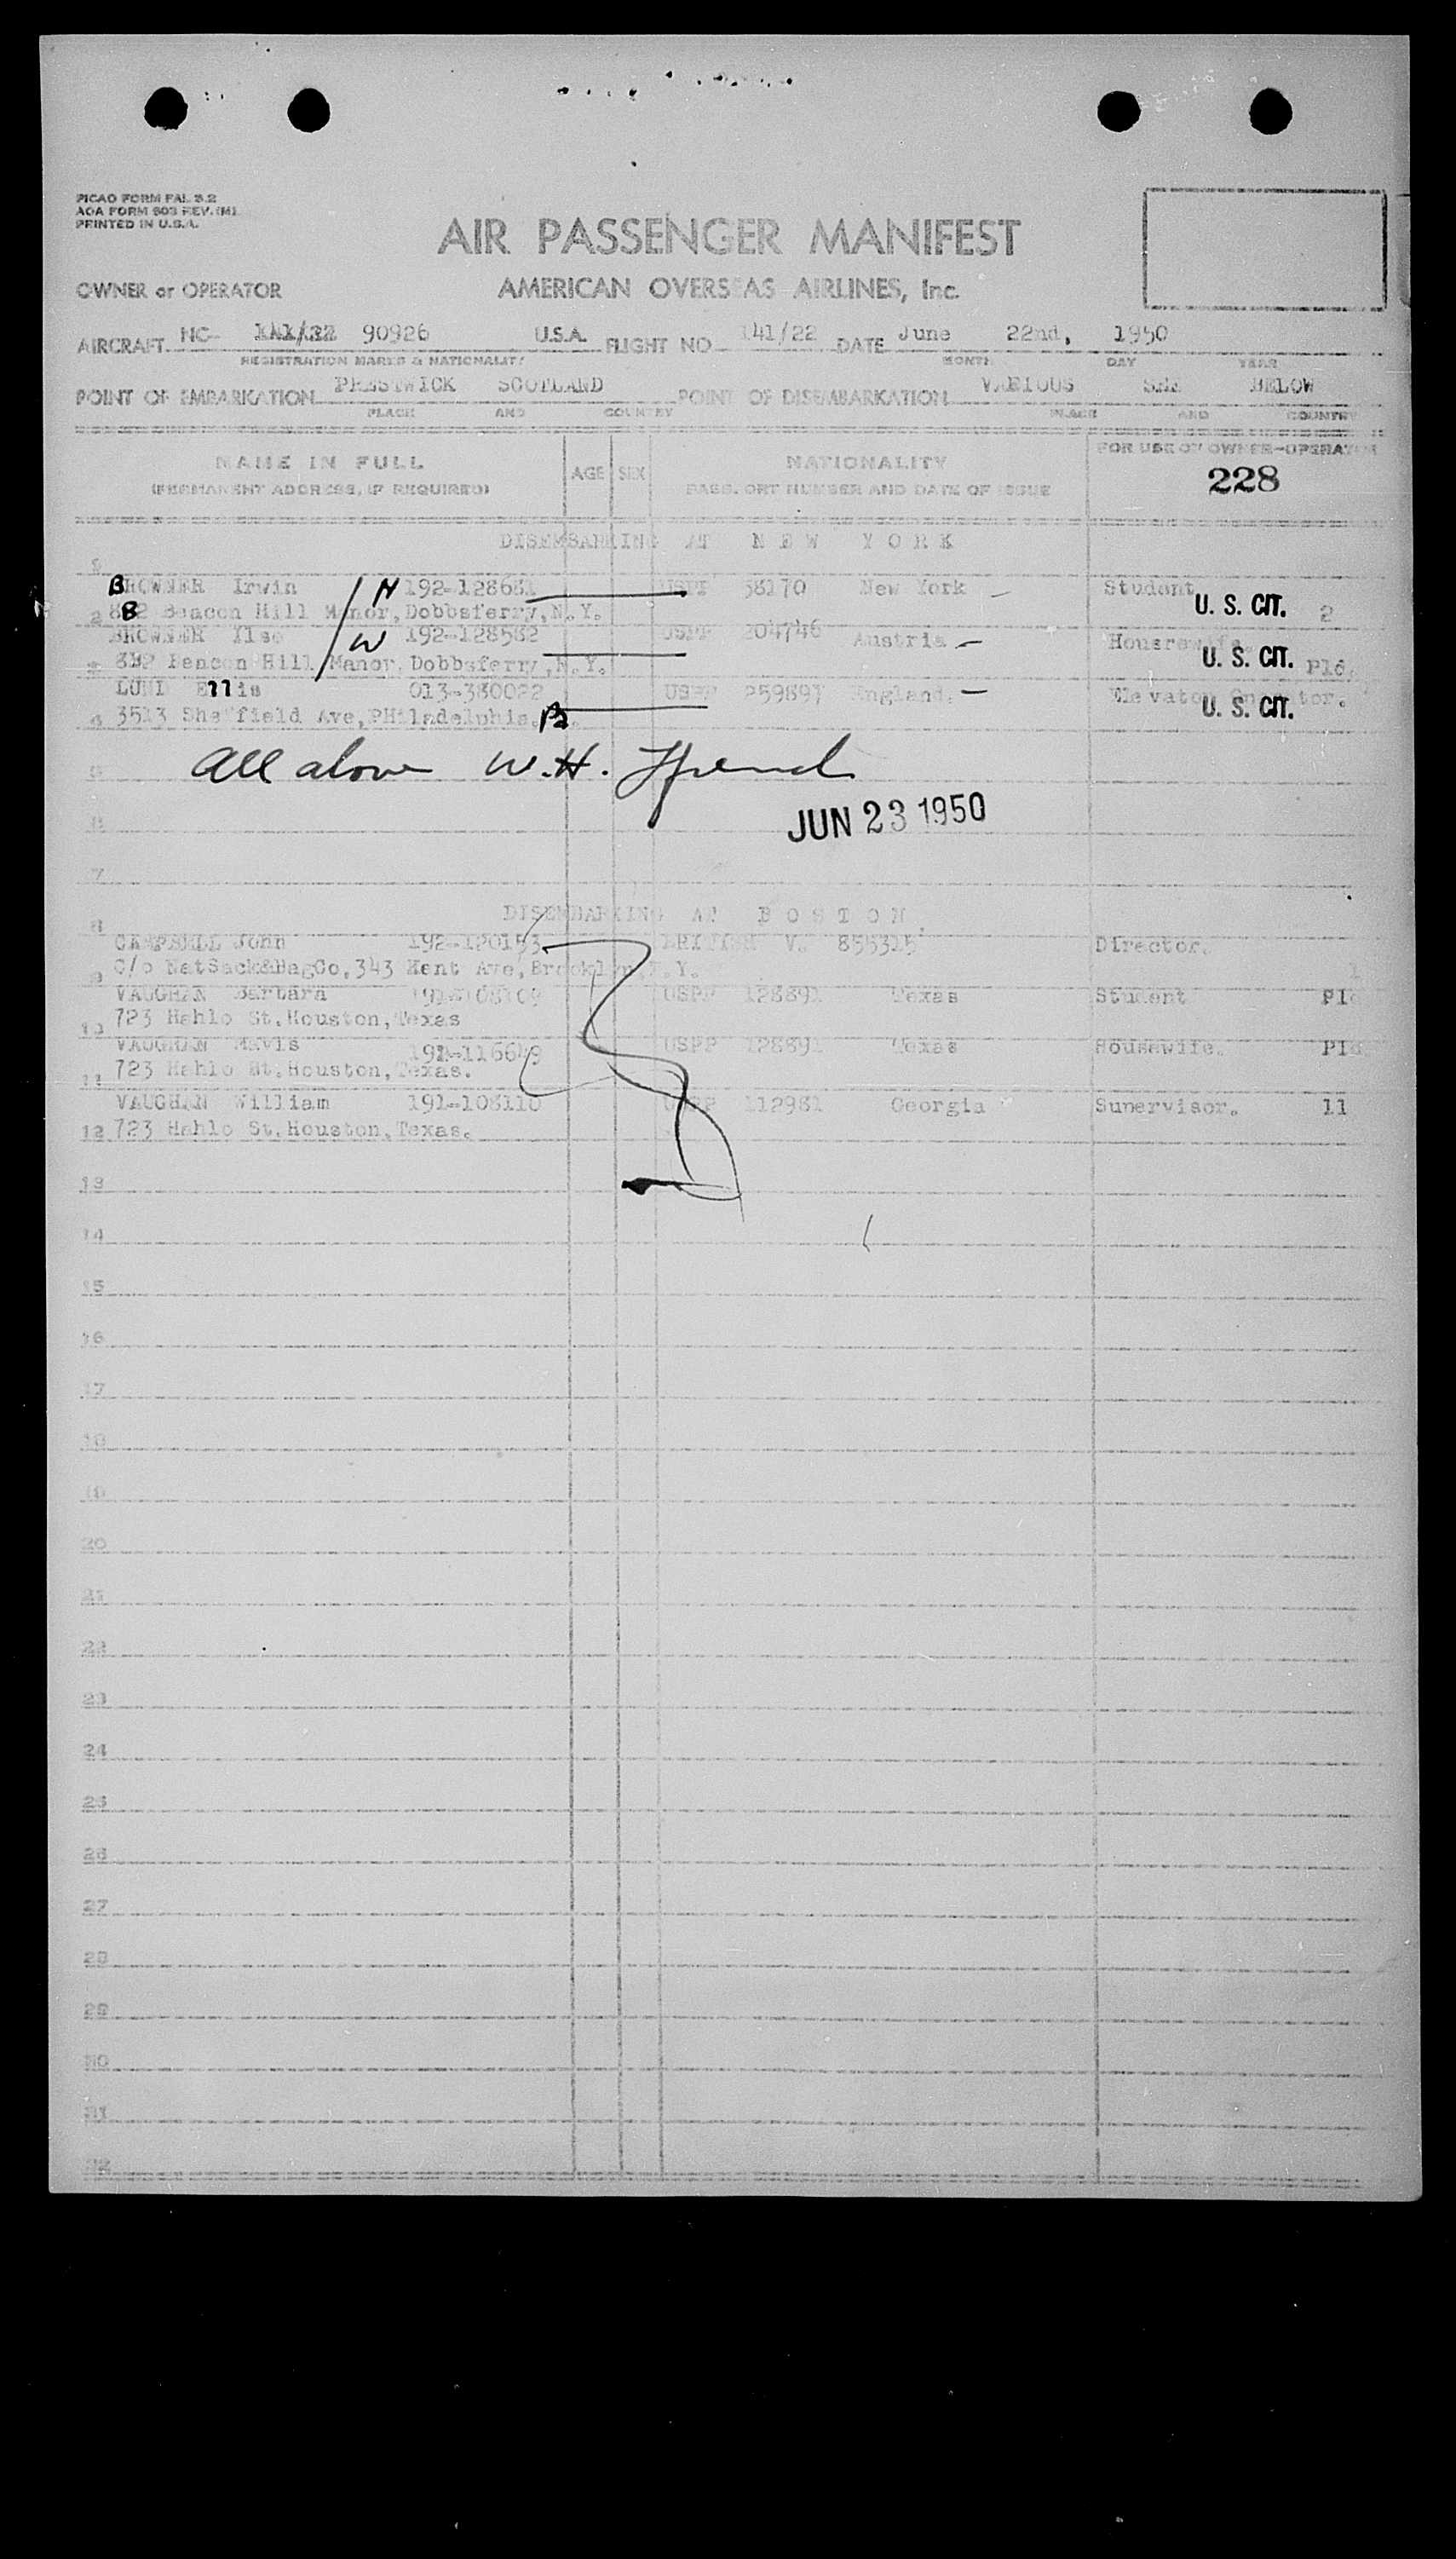 PICAO FORM FAL 3.2
AOA FORM 603 REV. (M)
PRINTED IN U.S.A.
AIR PASSENGER MANIFEST
OWNER or OPERATOR AMERICAN OVERSEAS AIRLINES, Inc.
AIRCRAFT NC- 90926 U.S.A. FLIGHT NO 141/22 DATE June 22nd, 1950
REGISTRATION MARKS & NATIONALITY MONTH DAY YEAR
POINT OF EMBARKATION PRESTWICK SCOTLAND POINT OF DISEMBARKATION VARIOUS SEE BELOW
PLACE AND COUNTRY PLACE AND COUNTRY
NAME IN FULL AGE SEX NATIONALITY FOR USE OF OWNER-OPERATOR
(PERMANENT ADDRESS, IF REQUIRED) PASSPORT NUMBER AND DATE OF ISSUE 228
DISEMBARKING AT NEW YORK
BROWNER Irwin H 192-128681 USPP 38170 New York Student
2 Beacon Hill Manor, Dobbsferry, N.Y. U. S. CIT. 2
BROWNER Ilse W 192-128582 USPP 204746 Austria Housewife.
Beacon Hill Manor, Dobbsferry, N.Y. U. S. CIT. Pld.
Ellis 013-380022 USPP 259897 England. Elevator Operator.
3513 Sheffield Ave, PHiladelphia. Pa. U. S. CIT.
All above W.H.
JUN 23 1950
7
8 DISEMBARKING AT BOSTON
CAMPBELL John 192-120153 BRITISH V. 855315 Director.
9 c/o NatSack&BagCo, 343 Kent Ave, Brooklyn, N.Y. 1
VAUGHAN Barbara 191-108109 USPP 128891 Texas Student Pld
10 723 Hahlo St. Houston, Texas
VAUGHAN Mavis 192-116649 USPP 128891 Texas Housewife. Pld
11 723 Hahlo St. Houston, Texas.
VAUGHAN William 191-108110 USPP 112981 Georgia Supervisor. 11
12 723 Hahlo St. Houston, Texas.
13
14
15
16
17
18
19
20
21
22
23
24
25
26
27
28
29
30
31
32